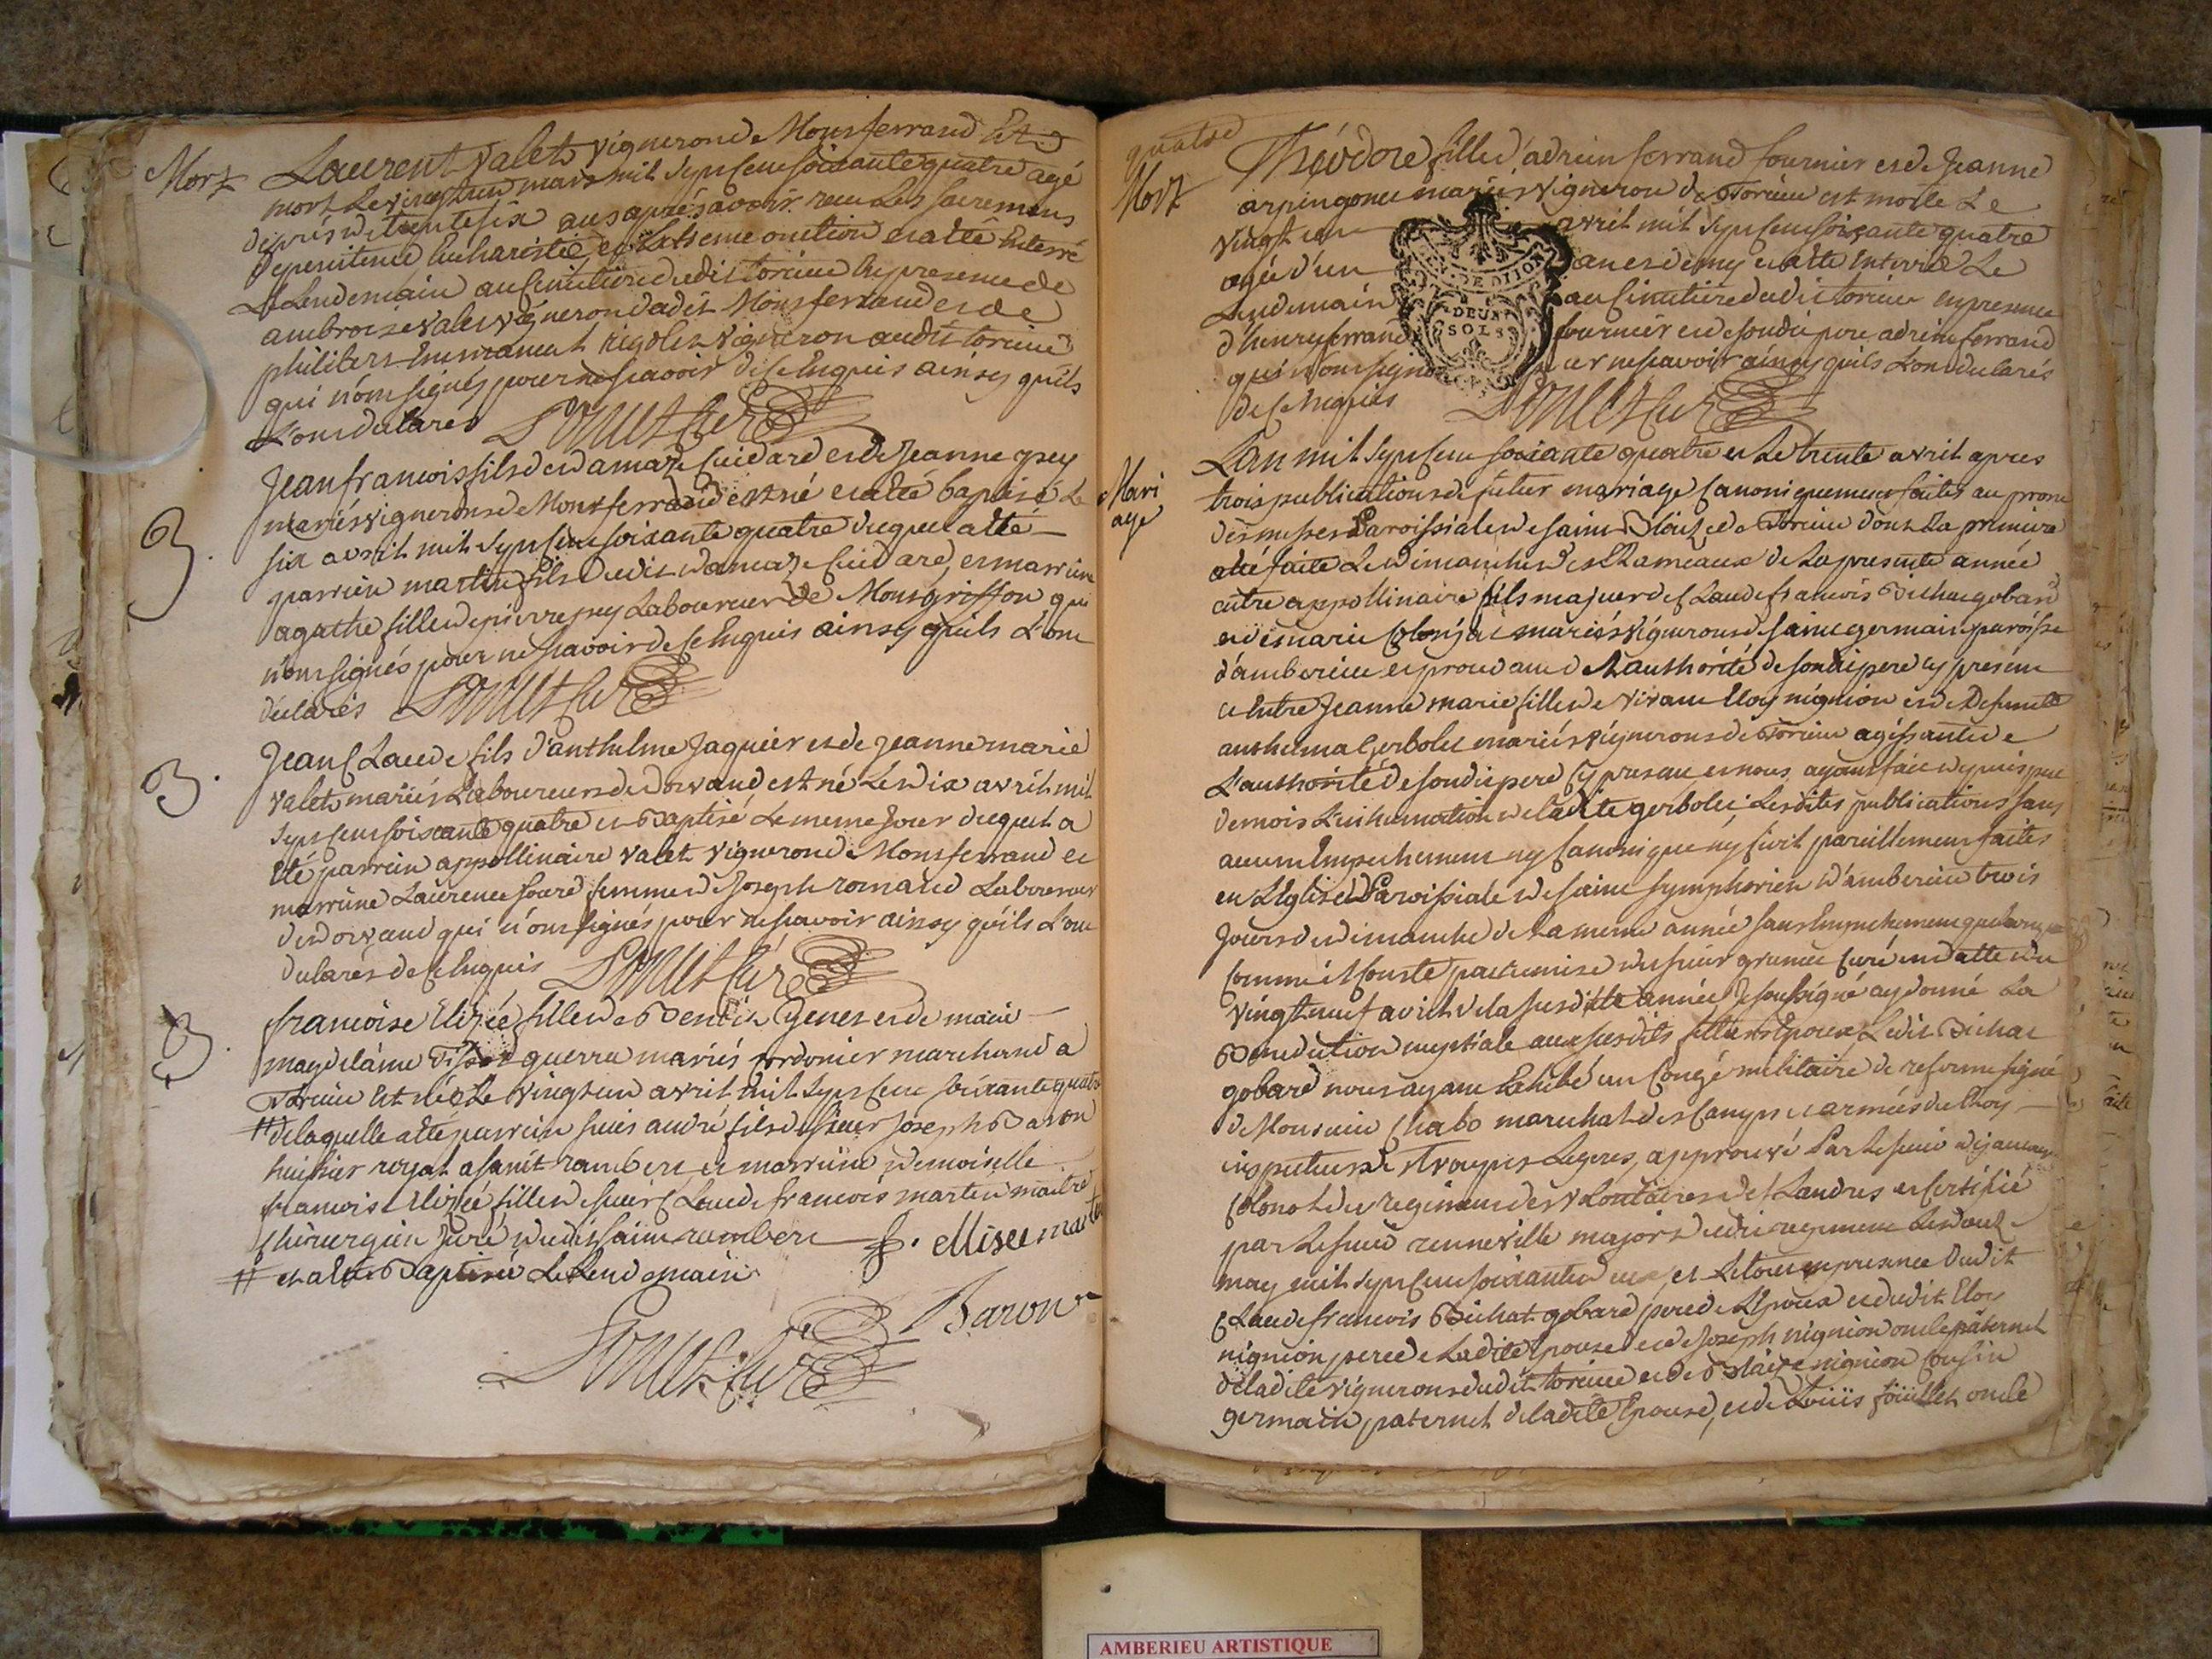 Mort Laurent valet vigneron de Monsferrand Est
mort le vingt un mars mil sept cens soixante quatre agé
de prés de trente six ans aprés avoir recu Les sacremens
de penitence Eucharistie et Extreme onction et a été Enterré
Le Lendemain au Cimitiere dudit torcieu En presence de
ambroise valet vigneron dudit Monsferrand et de
philibert Emmanuel rigolet vigneron audit torcieu
qui n'ont signés pour ne scavoir de ce Enquis ainsy quils
L'ont declarés
B. Jean francois fils de damaze Cuidard et de Jeanne prey
mariés vignerons de Monsferrand est né et a été baptisé Le
six avril mil sept cens soixante quatre duquel a été
parrein martin fils dudit damaze Cuidard, et marrine
agathe fille de pierre prey Laboureur de Monsgriffon qui
n'ont signés pour ne scavoir de ce Enquis ainsy quils L'ont
declarés
B. Jean Claude fils d'anthelme Jaquier et de Jeanne marie
valet mariés Laboureurs de dorvand est né Le dix avril mil
sept cens soixante quatre et Baptisé Le meme Jour duquel a
Eté parrein appollinaire valet vigneron de Monsferrand et
marrine Laurence foure femme de Joseph romand Laboureur
de dorvand qui n'ont signés pour ne scavoir ainsy quils L'ont
declarés de ce Enquis
B. francoise Elizée fille de Benoit Genes et de marie
magdelaine Tissot guerre mariés cordonier marchand a
Torcieu Est née Le vingt un avril mil sept cens soixante quatre
# de laquelle a été parrein sieur andré fils de sieur Joseph Baron
huissier royal a saint rambert, et marrine demoiselle
francoise Elizée fille de sieur Claude francois martin maitre
chirurgien Juré dudit saint rambert f. ellisee martin
# et a été Baptisée Le Lendemain
Baron
quatre
Mort Théodore fille d'adrien ferrand fournier et de Jeanne
arpin gonet mariés vigneron de Torcieu est morte Le
vingt un avril mil sept cens soixante quatre
agée d'un an et demy et a été Enterrée Le
Lendemain au Cimitiere dudit torcieu en presence
d'henry ferrand fournier et de son dit pere adrien ferrand
qui n'ont signé pour ne scavoir ainsy quils L'ont declarés
de ce Enquis
DE DIION
DEUX
SOLS
Mari
age
L'an mil sept cens soixante quatre et Le trente avril apres
trois publications de futur mariage Canoniquement faites au prone
des messes Paroissiales de saint Blaize de Torcieu dont La premiere
a été faite Le dimanche des Rameaux de La presente année
entre appollinaire fils majeur de Claude francois Bichat gobard
et de marie Colonjat mariés vignerons de saint germain paroisse
d'amberieu et procedant de L'authorité de son dit pere cy present
et Entre Jeanne marie fille de vivant Eloy nignion et de Defunte
anthelma Gerbolet mariés vignerons de Torcieu agissante de
L'authorité de son dit pere cy present et nous ayant fait depuis peu
de mois L'inhumation de ladite gerbolet; Lesdites publications sans
aucun Empechement ny Canonique ny Civil pareillement faites
en L'Eglise Paroissiale de saint symphorien d'amberieu trois
Jours de dimanche de La meme année sans Empechement quelconque
comme il Conste par remise du sieur grumet Curé en datte du
vingt neuf avril de la susditte année Je soussigné ay donné La
Benediction nuptiale aux susdits futurs Epoux Ledit Bichat
gobard nous ayant Exhibé un Congé militaire de reforme signé
de Monsieur Chabo marechal des Camps et armées du Roy
inspecteur de Troupes Legeres, approuvé Par Le sieur
Colonel du regiment des volontaires de flandres et Certifié
par Le sieur renneville major dudit regiment Le douze
may mil sept cens soixante et Le tout en presence dudit
Claude francois Bichat gobard pere de L'Epoux et dudit Eloy
nignion, pere de Ladite Epouse et de Joseph nignion oncle paternel
de ladite vignerons dudit torcieu et de Blaize nignion cousin
germain paternel de ladite Epouse, et de Louis foüillet oncle
AMBERIEU ARTISTIQUE